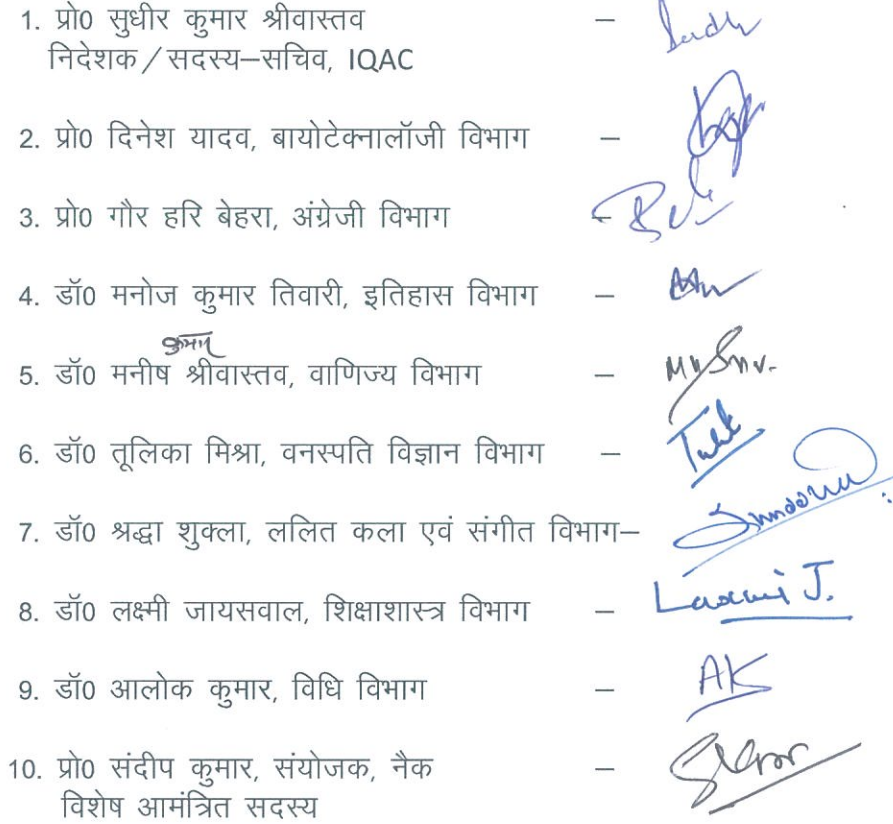 1. प्रो0 सुधीर कुमार श्रीवास्तव –
निदेशक / सदस्य–सचिव, IQAC
2. प्रो0 दिनेश यादव, बायोटेक्नालॉजी विभाग –
3. प्रो0 गौर हरि बेहरा, अंग्रेजी विभाग –
4. डॉ0 मनोज कुमार तिवारी, इतिहास विभाग –
कुमार
5. डॉ0 मनीष श्रीवास्तव, वाणिज्य विभाग –
6. डॉ0 तूलिका मिश्रा, वनस्पति विज्ञान विभाग –
7. डॉ0 श्रद्धा शुक्ला, ललित कला एवं संगीत विभाग–
8. डॉ0 लक्ष्मी जायसवाल, शिक्षाशास्त्र विभाग – Laxmi J.
9. डॉ0 आलोक कुमार, विधि विभाग – AK
10. प्रो0 संदीप कुमार, संयोजक, नैक –
विशेष आमंत्रित सदस्य